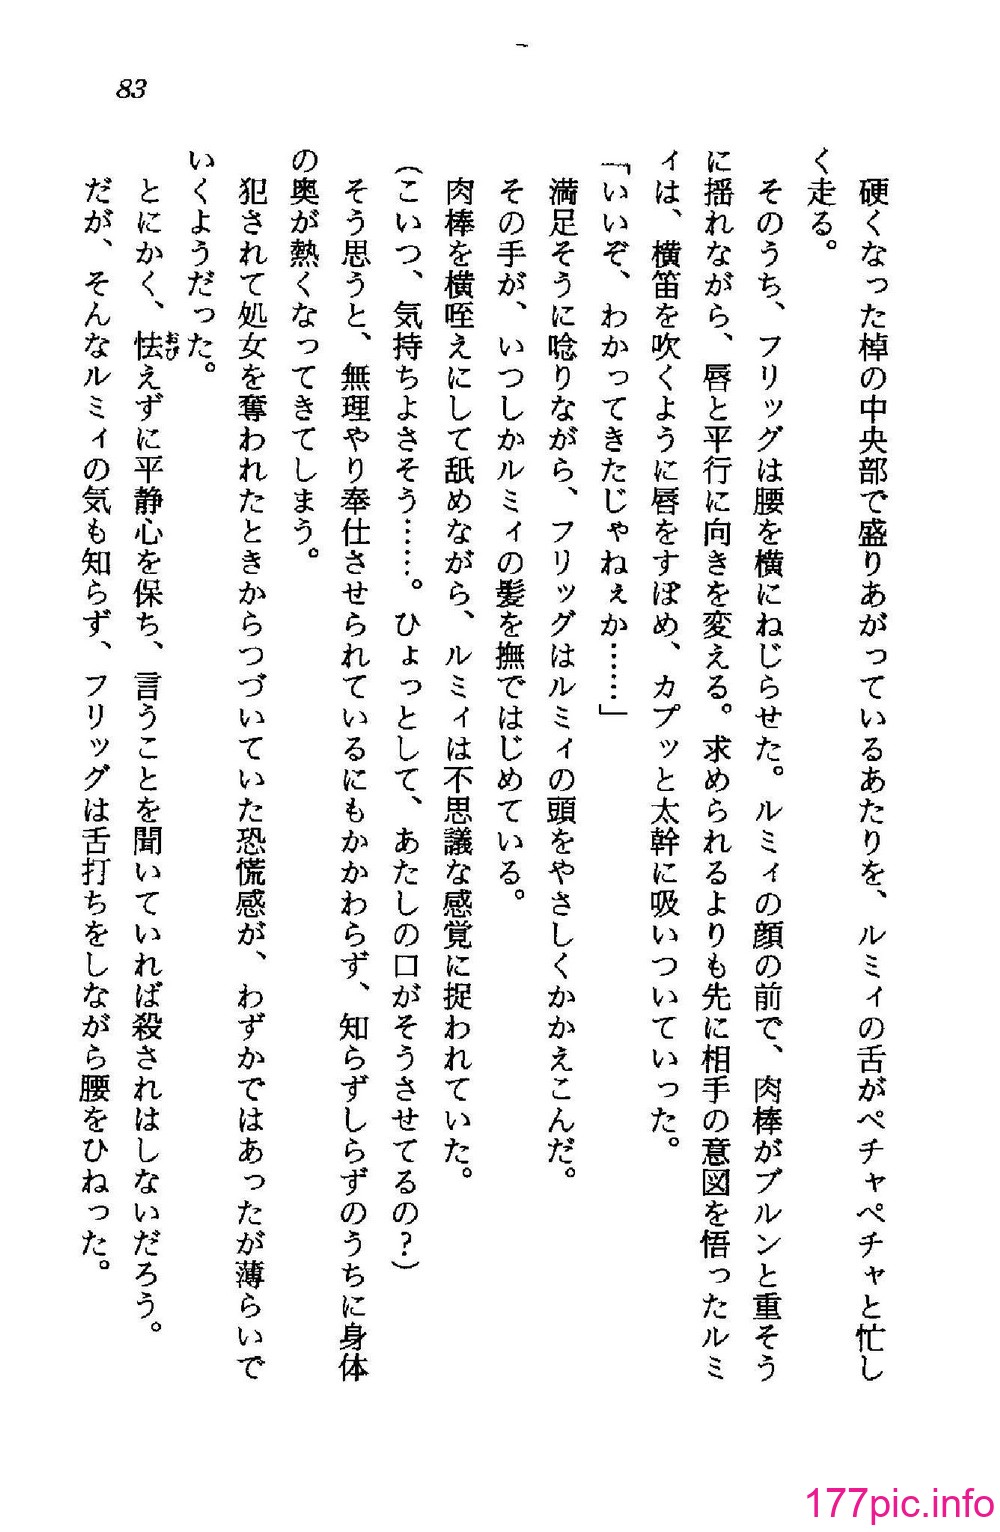 83
硬くなった棹の中央部で盛りあがっているあたりを、ルミィの舌がペチャペチャと忙し
く走る。
そのうち、フリッグは腰を横にねじらせた。ルミィの顔の前で、肉棒がブルンと重そう
に揺れながら、唇と平行に向きを変える。求められるよりも先に相手の意図を悟ったルミ
ィは、横笛を吹くように唇をすぼめ、カプッと太幹に吸いついていった。
「いいぞ、わかってきたじゃねぇか……」
満足そうに唸りながら、フリッグはルミィの頭をやさしくかかえこんだ。
その手が、いつしかルミィの髪を撫ではじめている。
肉棒を横咥えにして舐めながら、ルミィは不思議な感覚に捉われていた。
(こいつ、気持ちよさそう……。ひょっとして、あたしの口がそうさせてるの?)
そう思うと、無理やり奉仕させられているにもかかわらず、知らずしらずのうちに身体
の奥が熱くなってきてしまう。
犯されて処女を奪われたときからつづいていた恐慌感が、わずかではあったが薄らいで
いくようだった。
とにかく、怯おびえずに平静心を保ち、言うことを聞いていれば殺されはしないだろう。
だが、そんなルミィの気も知らず、フリッグは舌打ちをしながら腰をひねった。
177pic.info